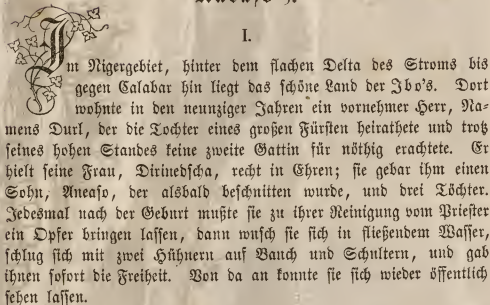 I.
Im Nigergebiet, hinter dem flachen Delta des Stroms bis
gegen Calabar hin liegt das schöne Land der Ibo's. Dort
wohnte in den neunziger Jahren ein vornehmer Herr, Na-
mens Durl, der die Tochter eines großen Fürsten heirathete und trotz
seines hohen Standes keine zweite Gattin für nöthig erachtete. Er
hielt seine Frau, Dirinedscha, recht in Ehren; sie gebar ihm einen
Sohn, Aneaso, der alsbald beschnitten wurde, und drei Töchter.
Jedesmal nach der Geburt mußte sie zu ihrer Reinigung vom Priester
ein Opfer bringen lassen, dann wusch sie sich in fließendem Wasser,
schlug sich mit zwei Hühnern auf Bauch und Schultern, und gab
ihnen sofort die Freiheit. Von da an konnte sie sich wieder öffentlich
sehen lassen.